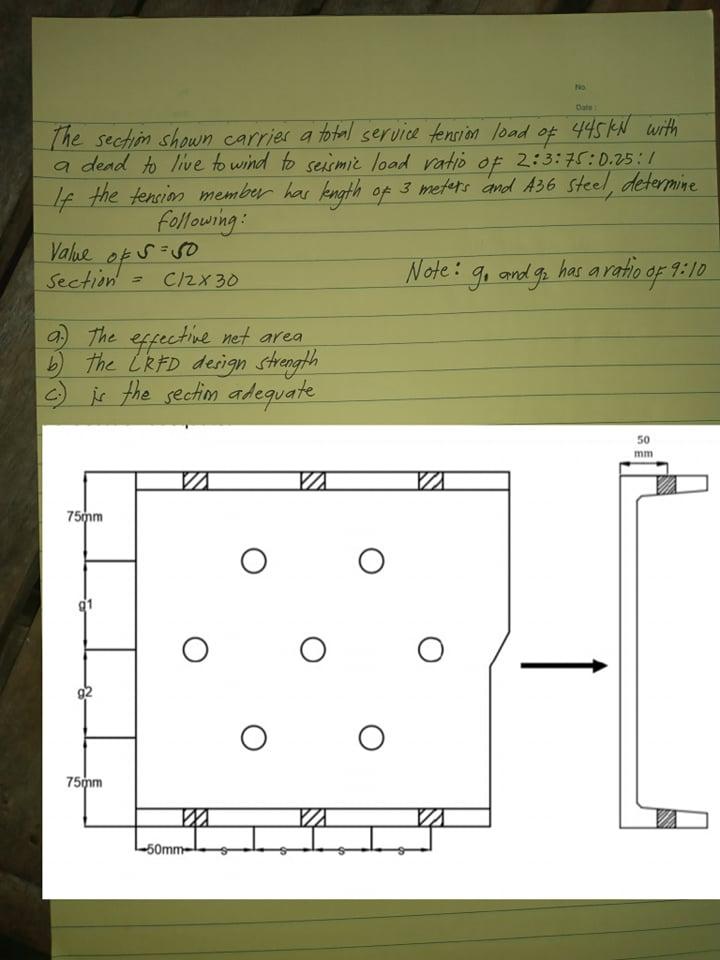 No.
Date:
The section shown carries a total service tension load of 445kN with
a dead to live to wind to seismic load ratio of 2:3:75:0.25:1
If the tension member has length of 3 meters and A36 steel, determine
following:
Value of S = 50
Section = C12X30
Note: g1 and g2 has a ratio of 9:10
a.) The effective net area
b) The LRFD design strength
c.) is the section adequate
75mm
g1
g2
75mm
50mm
s
s
s
s
50
mm